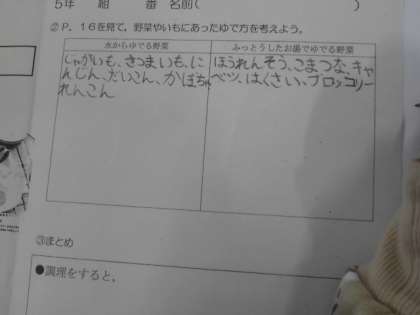 5年 組 番 名前( )
②P.16を見て、野菜やいもにあったゆで方を考えよう。
水からゆでる野菜
じゃがいも、さつまいも、に
んじん、だいこん、かぼちゃ
れんこん
ふっとうしたお湯でゆでる野菜
ほうれんそう、こまつな、キャ
ベツ、はくさい、ブロッコリー
③まとめ
●調理をすると、